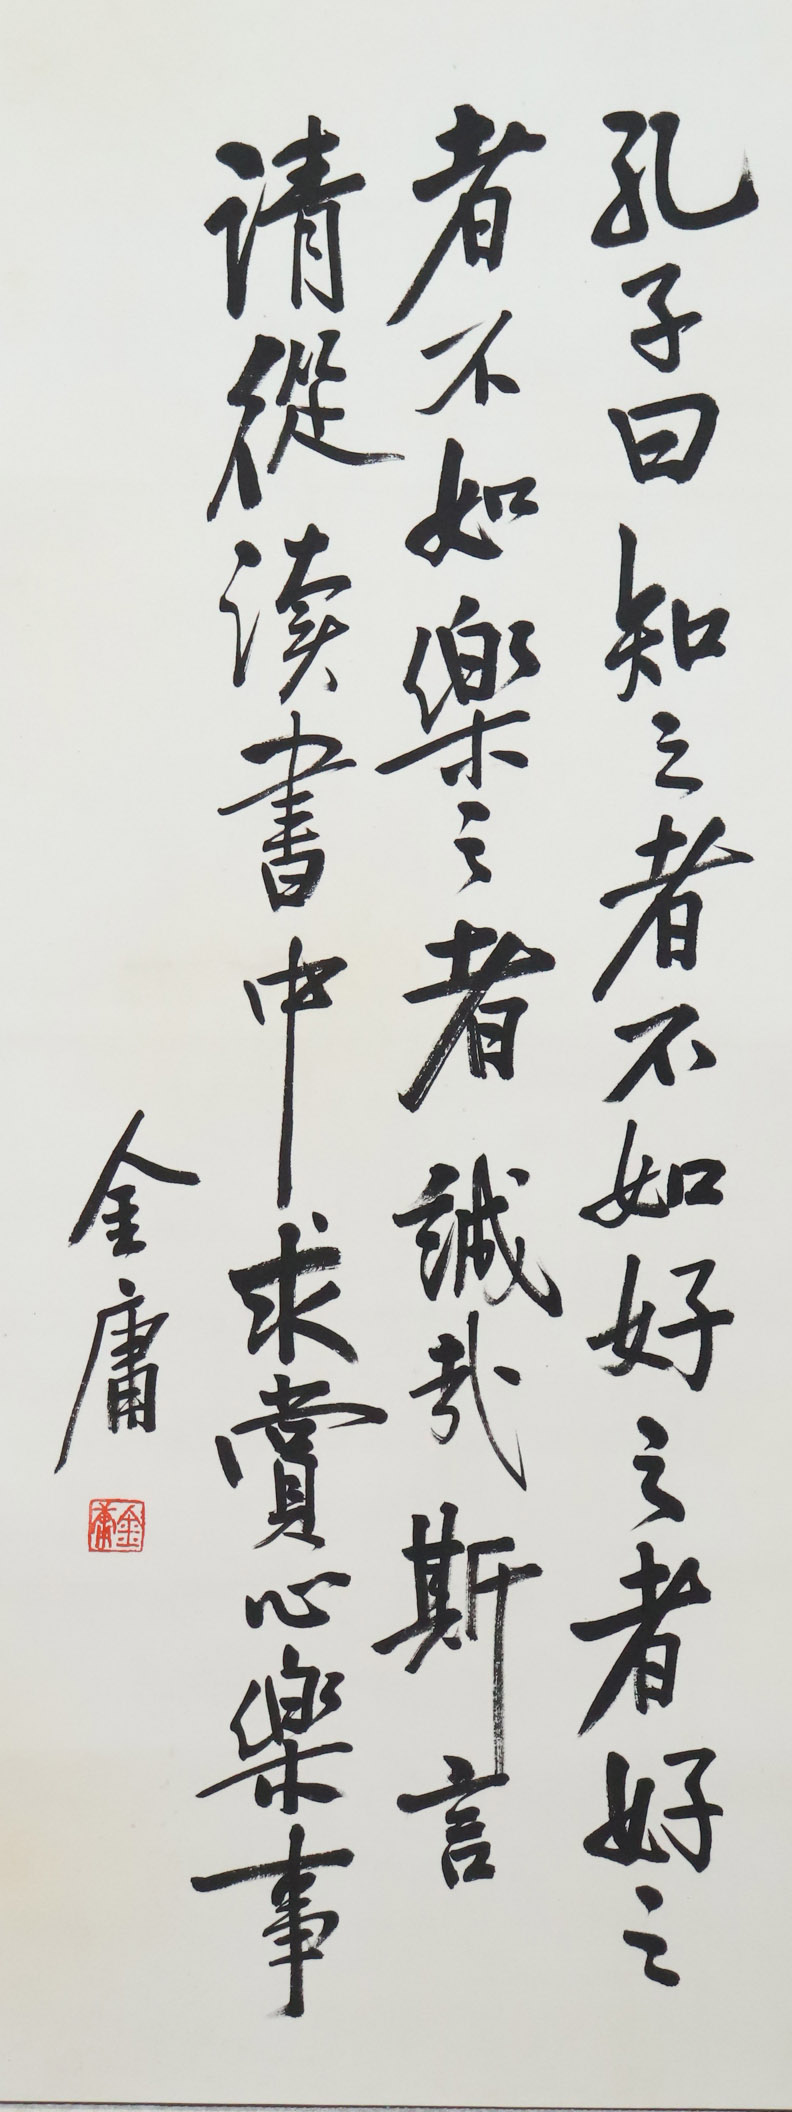 孔子曰知之者不如好之者好之
者不如樂之者誠哉斯言
请從读書中求賞心樂事
金庸
金庸